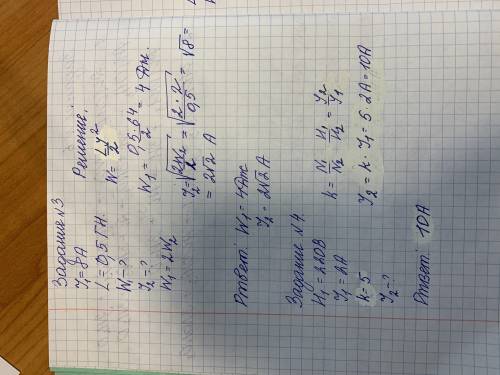 Задание №3
I₁ = 8А
L = 0,5 ГН.
W₁ - ?
I₂ - ?
W₁ = 2W₂
Решение:
W = LI²/2
W₁ = 0,5·64/2 = 4 Дж.
I₂ = √(2W₂/L) = √(2·2/0,5) = √8 =
= 2√2 А
Ответ. W₁ = 4Дж
I₂ = 2√2 А
Задание №4.
U₁ = 220В
I₁ = 2А
k = 5
I₂ = ?
k = N₁/N₂ = U₁/U₂ = I₂/I₁
I₂ = k · I₁ = 5 · 2А = 10А
Ответ: 10А